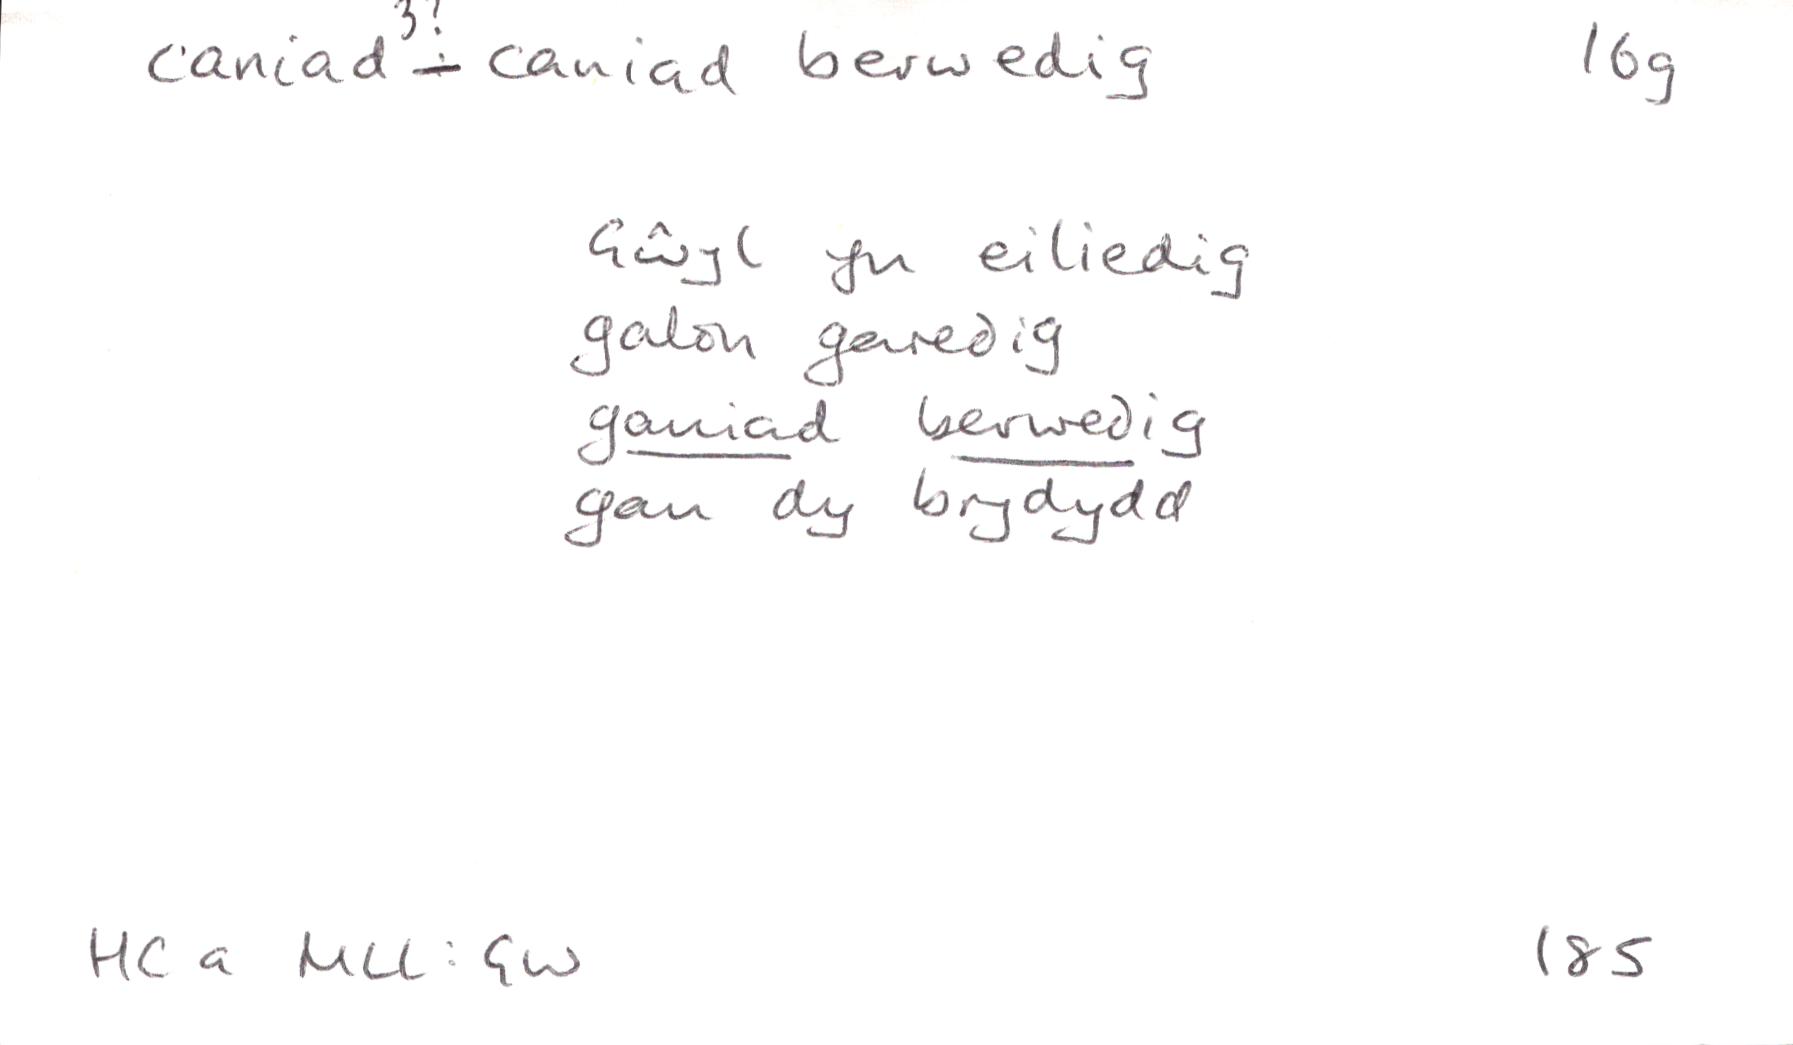 caniad³? ÷ caniad berwedig 16g
Gŵyl yn eiliedig
galon garedig
ganiad berwedig
gan dy brydydd
HC a MLl: GW 185